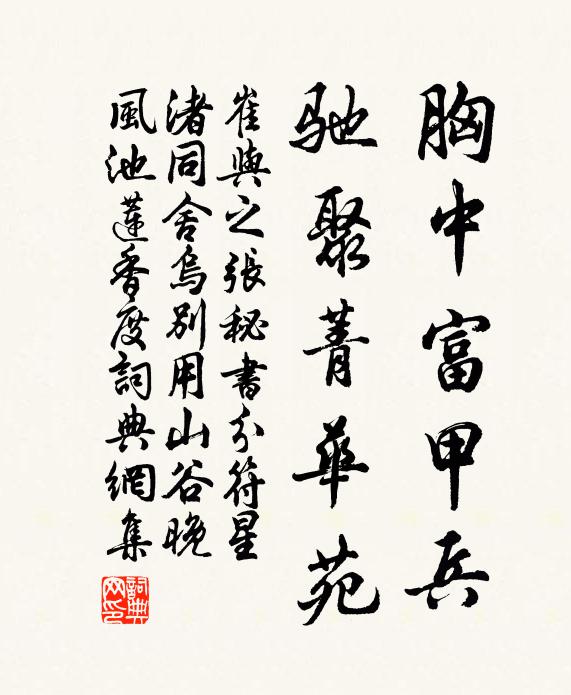 胸中富甲兵
馳聚菁華苑
崔與之張秘書分符星
渚同舍烏別用山谷晚
風池蓮香度詞典網集
詞典網印